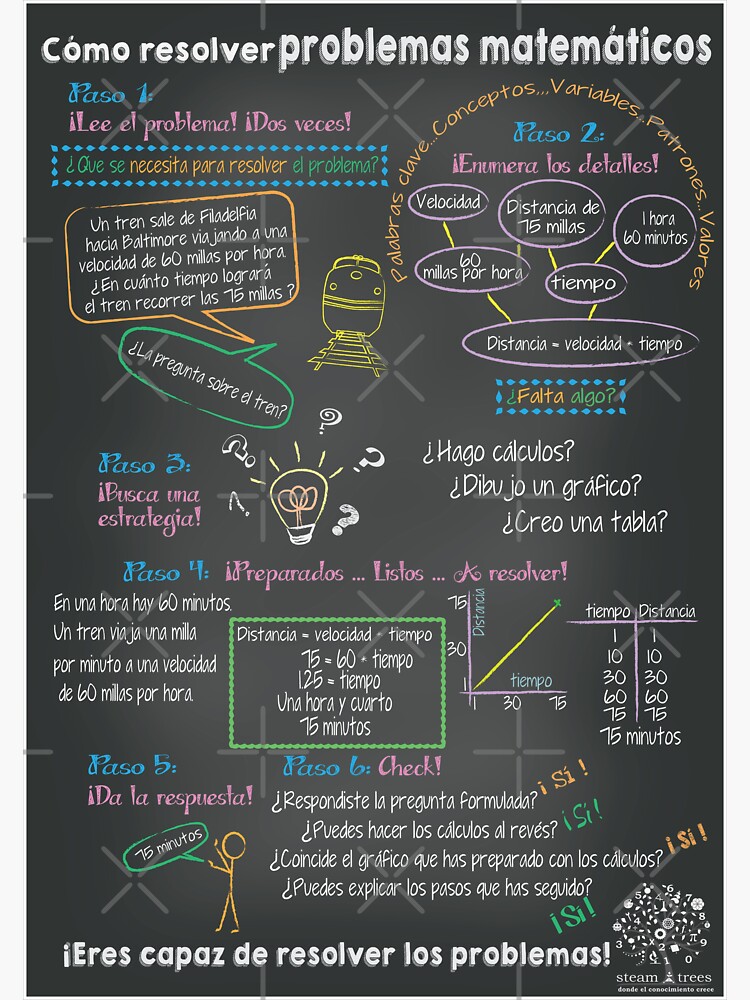 Cómo resolver problemas matemáticos
Paso 1:
¡Lee el problema! ¡Dos veces!
¿Que se necesita para resolver el problema?
Un tren sale de Filadelfia
hacia Baltimore viajando a una
velocidad de 60 millas por hora.
¿En cuánto tiempo logrará
el tren recorrer las 75 millas ?
¿La pregunta sobre el tren?
Palabras clave...Conceptos,,,Variables...Patrones...Valores
Paso 2:
¡Enumera los detalles!
Velocidad
Distancia de
75 millas
1 hora
60 minutos
60
millas por hora
tiempo
Distancia = velocidad * tiempo
¿Falta algo?
Paso 3:
¡Busca una
estrategia!
¿Hago cálculos?
¿Dibujo un gráfico?
¿Creo una tabla?
Paso 4: ¡Preparados ... Listos ... A resolver!
En una hora hay 60 minutos.
Un tren viaja una milla
por minuto a una velocidad
de 60 millas por hora.
Distancia = velocidad * tiempo
75 = 60 * tiempo
1.25 = tiempo
Una hora y cuarto
75 minutos
75
30
1
Distancia
tiempo
1 30 75
tiempo Distancia
1 1
10 10
30 30
60 60
75 75
75 minutos
Paso 5:
¡Da la respuesta!
75 minutos
Paso 6: Check!
¿Respondiste la pregunta formulada? ¡Sí!
¿Puedes hacer los cálculos al revés? ¡Sí!
¿Coincide el gráfico que has preparado con los cálculos? ¡Sí!
¿Puedes explicar los pasos que has seguido?
¡Sí!
¡Eres capaz de resolver los problemas!
steam trees
donde el conocimiento crece